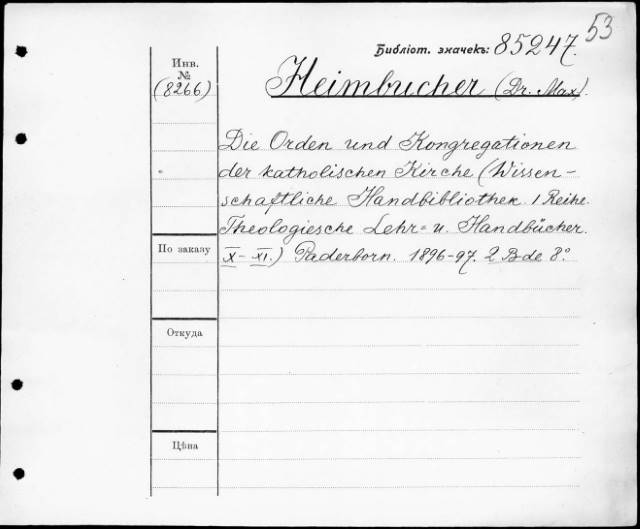 53
Библіот. значекъ: 85247.
Инв.
№
(8266)
Heimbucher (Dr. Max).
Die Orden und Kongregationen
der katholischen Kirche (Wissen-
schaftliche Handbibliothek. 1 Reihe.
Theologiesche Lehr= u. Handbücher.
X - XI.) Paderborn. 1896-97. 2 Bde 8°.
По заказу
Откуда
Цѣна